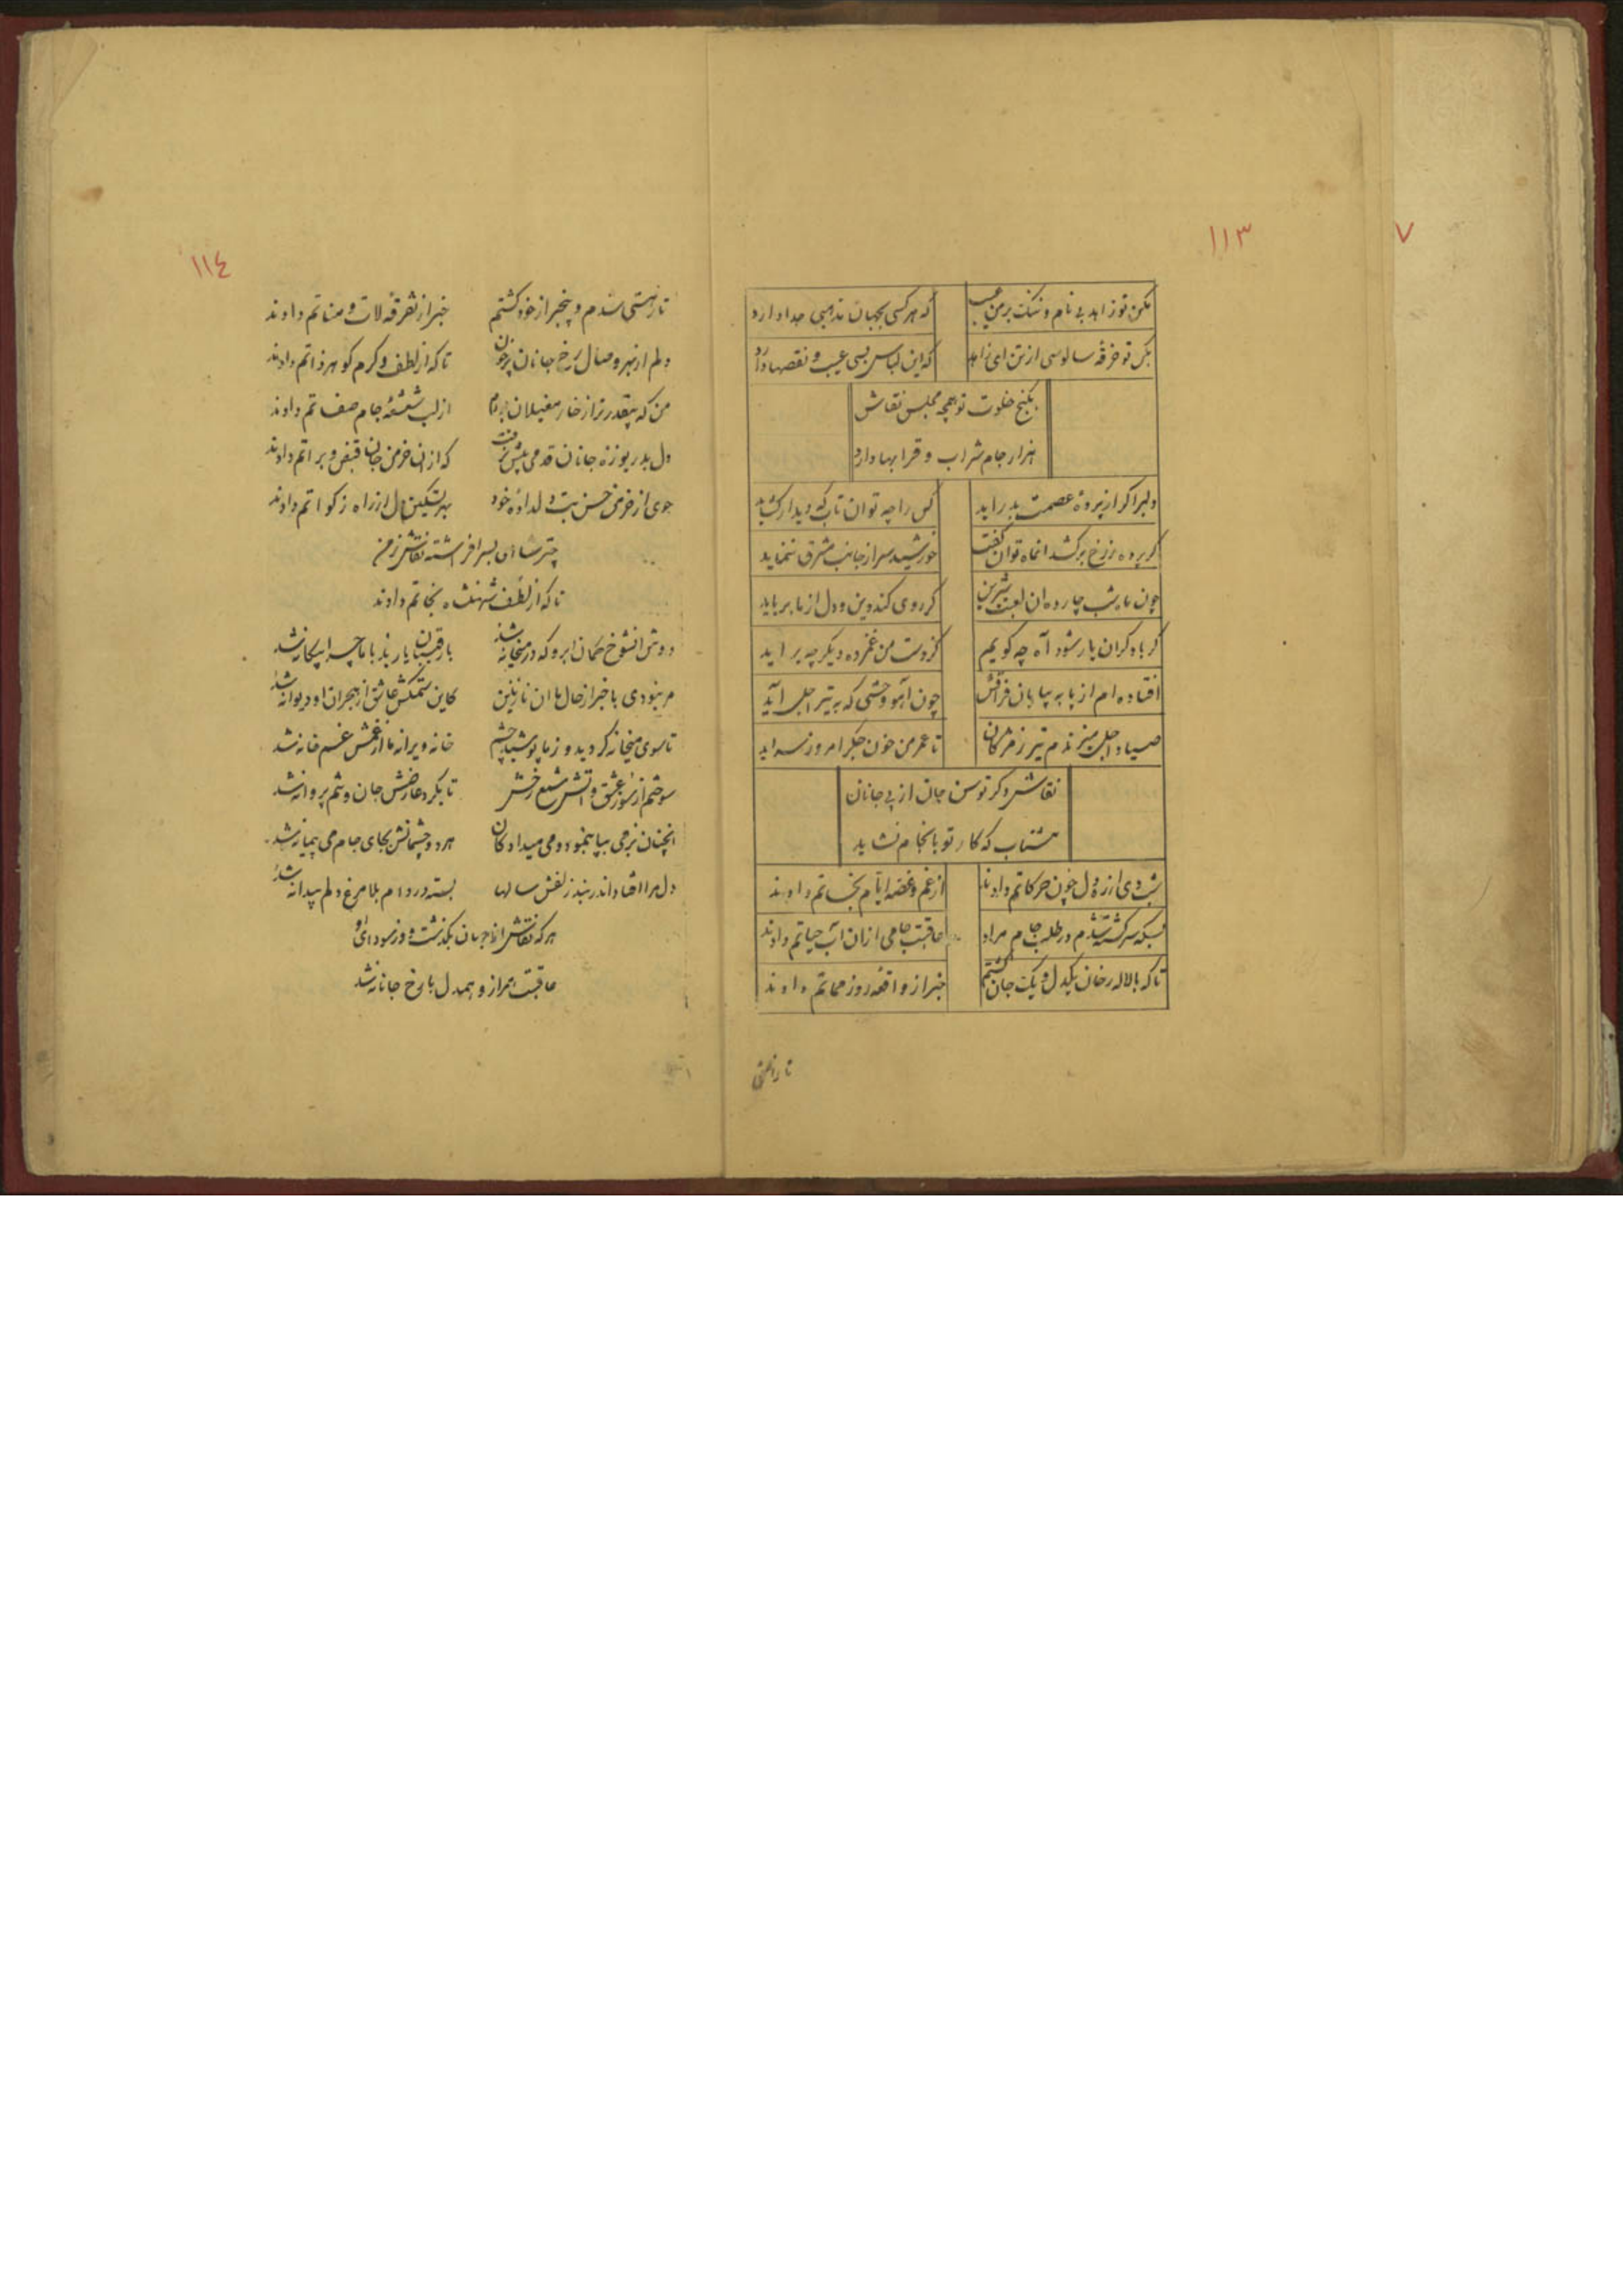 ٧
١١٣
مکن تو زاهد بی نام و ننک بر من عیب
که هر کسی بجهان مذهبی جدا دارد
بکن تو خرقهٔ سالوسی از تن ای زاهد
که این لباس بسی عیب و نقصها دارد
بکنج خلوت تو همچه مجلس نقاش
هزار جام شراب و قرابها دارد
دلبر اکر از پرده عصمت بدر اید
کس را چه توان تاب که دیدار کشاید
کر پرده ز رخ بر کشد انماه توان کفت
خورشید سر از جانب مشرق ننماید
چون ماه شب چارده ان لعبت شیرین
کر روی کند دین و دل از ما برباید
کر با دکران یار شود آه چه کویم
کز دست من غمزده دیکر چه بر اید
افتاده ام از پا به بیابان فراقش
چون آهو وحشی که به تیر اجل آید
صیاد اجل میزندم تیر ز مژکان
تا عمر من خون جکر امروز سر اید
نقاش دکر توسن جان از پی جانان
مشتاب که کار تو بانجام نشاید
از غم و غصه ایام نجاتم دادند
بسکه سرکشته شدم در طلب جام مراد
عاقبت جامی از ان آب حیاتم دادند
تا که با لاله رخان یکدل و یک جان کشتم
خبر از واقعه روز مماتم دادند
تا ز هستی
١١٤
تا ز هستی شدم و بیخبر از خود کشتم
خبر از تفرقهٔ لات و مناتم دادند
دلم از بهر وصال رخ جانان پر خون
تا که از لطف و کرم کوهر ذاتم دادند
من که بیقدرتر از خار مغیلان بودم
از لب شعشعهٔ جام صفاتم دادند
دل بدریوزه جانان قدمی پیش نرفت
که از ان خرمن جان قبض و براتم دادند
جوی از خرمن حسن بت دلداده خود
بهر تسکین دل از راه زکواتم دادند
چتر شاهی بسر افراشته نقاش ز من
تا که از لطف شهنشاه نجاتم دادند
دوش انشوخ کمان ابرو که در میخانه شد
با رقیبان یار بد با ما چرا بیکانه شد
کاین ستمکش عاشق از هجران او دیوانه شد
تا سوی میخانه کردید و ز ما پوشید چشم
خانه ویرانه ما از غمش غمخانه شد
سوختم از سوز عشق و اتش شمع رخش
تا بکرد عارضش جان و تنم پروانه شد
هر دو چشمانش بجای جام می پیمانه شد
دل مرا افتاد اندر بند زلفش سالها
بسته در دام بلا مرغ دلم بیدانه شد
هر که نقاش از جهان بکذشت و وز سودای او
عاقبت همراز و همدل با رخ جانانه شد